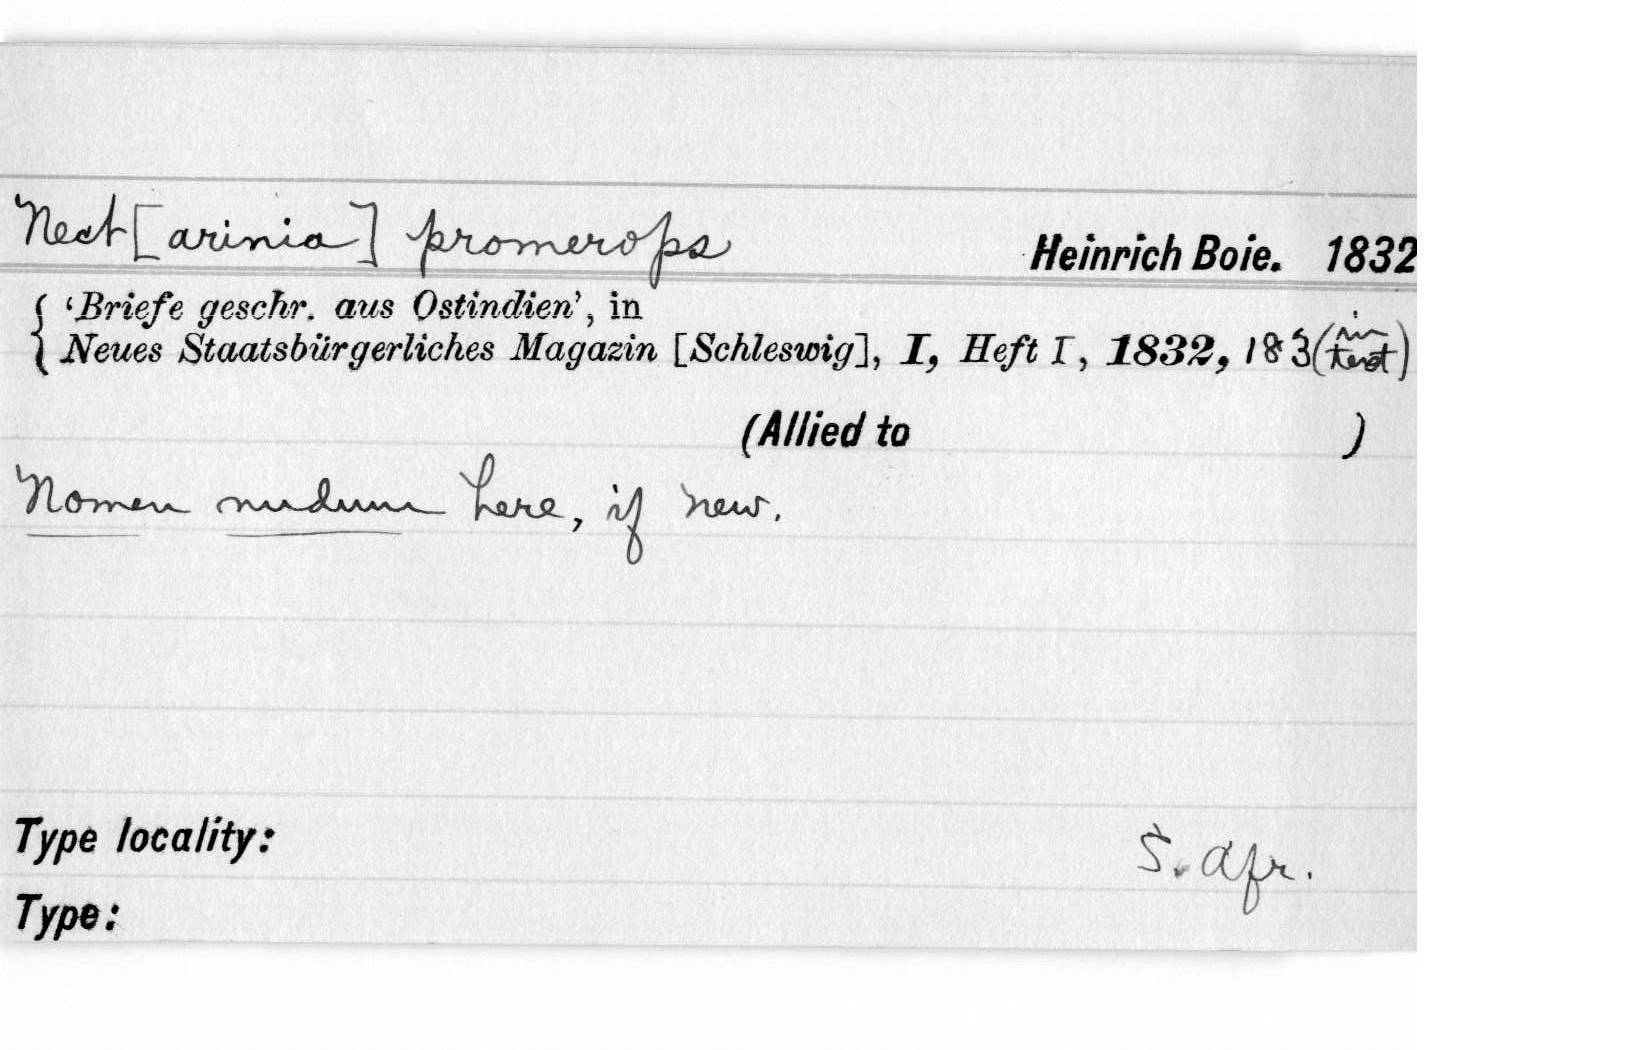 Nect[arinia] promerops Heinrich Boie. 1832
‘Briefe geschr. aus Ostindien’, in
Neues Staatsbürgerliches Magazin [Schleswig], I, Heft I, 1832, 183 (in text)
(Allied to )
Nomen nudum here, if new.
Type locality: S. Afr.
Type: